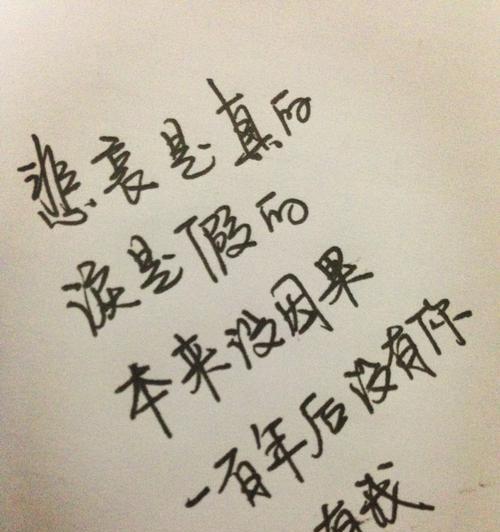 悲哀是真的
泪是假的
本来没因果
一百年后没有你
有我